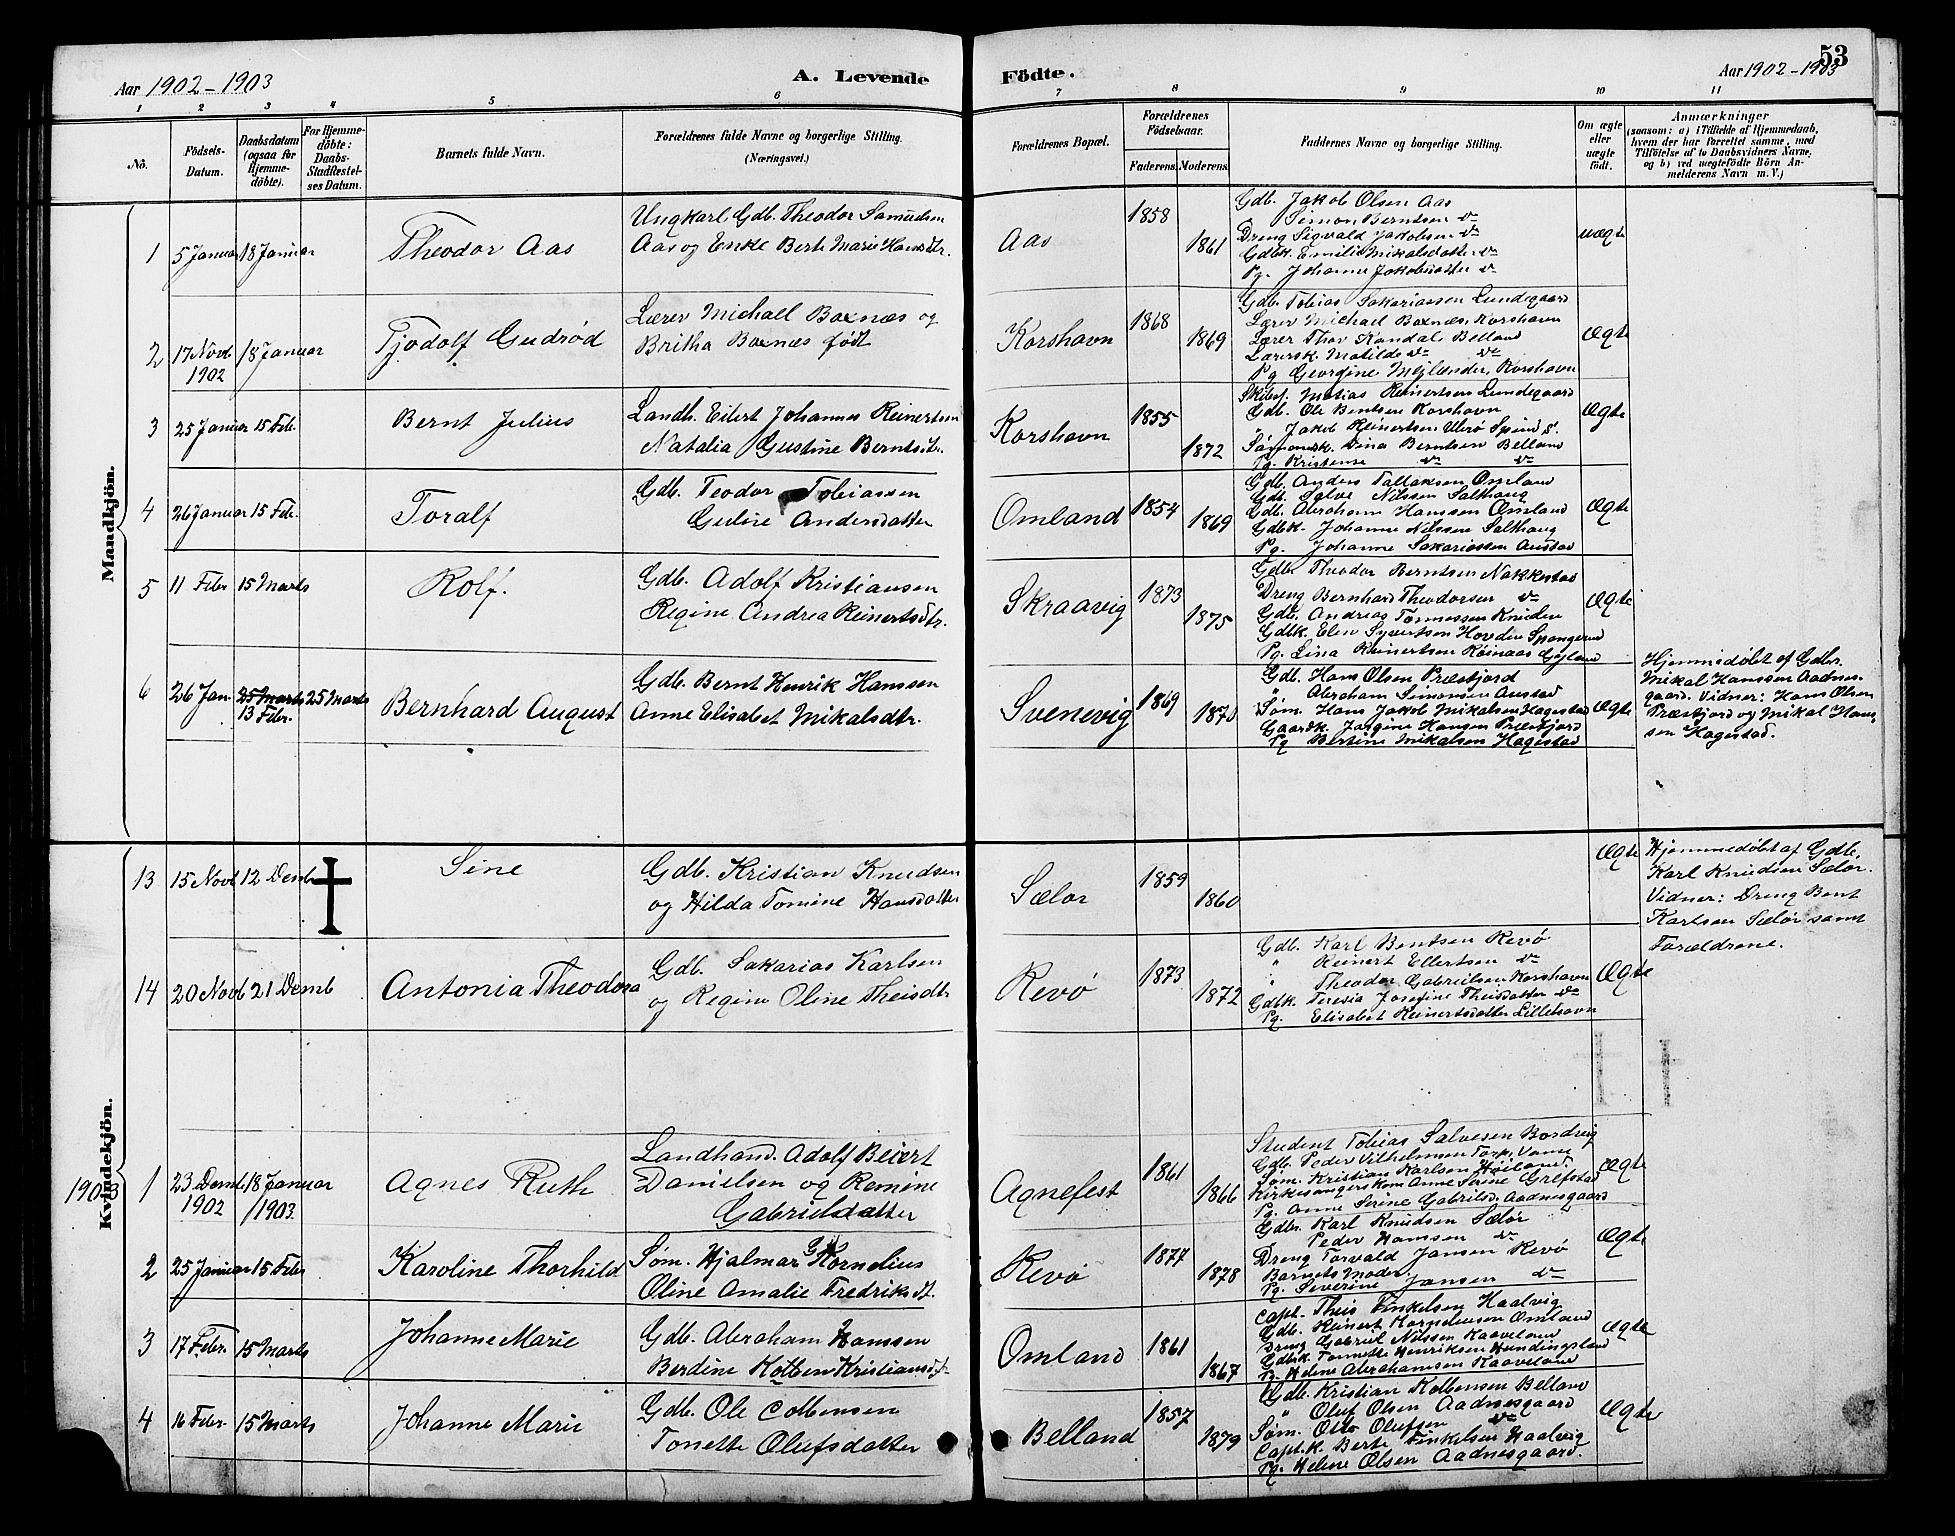 53
Aar 1902-1903
A. Levende Födte.
Aar 1902-1903
1 2 3 4 5 6 7 8 9 10 11
Nô.
Födsels-Datum.
Daabsdatum (ogsaa for Hjemme-döbte).
For Hjemme-döbte: Daabs-Stadfæstel-ses Datum.
Barnets fulde Navn.
Forældrenes fulde Navne og borgerlige Stilling. (Næringsvei.)
Forældrenes Bopæl.
Forældrenes Födselsaar.
Faderens. Moderens.
Faddernes Navne og borgerlige Stilling.
Om ægte eller uægte födt.
Anmærkninger
(saasom: a) i Tilfælde af Hjemmedaab, hvem der har forrettet samme, med Tilföielse af to Daabsvidners Navne, og b) ved uægtefödte Börn An-melderens Navn m. V.)
Mandkjön.
1 5 Januar 18 Januar Theodor Aas
Ungkarl Gdb. Theodor Samuelsen
Aas og Enke Berte Marie Hansdtr.
Aas 1858 1861
Gdb. Jakob Olsen Aas
Simon Berntsen do
Dreng Sigvald Jakobsen do
Gdbk. Emilie Mikalsdatter do
Pg. Johanne Jakobsdatter do
uægte
2 17 Novb 1902 18 Januar Tjodolf Gudrød
Lærer Michael Baxnæs og
Britha Baxnæs født
Korshavn 1868 1869
Gdb. Tobias Sakariassen Lundegaard
Lærer Michael Baxnæs, Korshavn
Lærer Thor Kandal, Belland
Lærersk. Matilde do do
Pg Georgine Mejlænder, Korshavn
Ægte
3 25 Januar 15 Feb. Bernt Julius
Landh. Eilert Johannes Reinertsen
Natalia Gustine Berntsdtr.
Korshavn 1855 1872
Skibsf. Matias Reinertsen Lundegaard
Gdb. Ole Bentsen Korshavn
" Jakob Reinertsen Ulerø Spind S.
Sømandsk. Dina Berntsen Belland
Pg. Kristense do do
Ægte
4 26 Januar 15 Feb. Toralf
Gdb. Teodor Tobiassen
Guline Andersdatter
Omland 1854 1869
Gdb. Anders Tallaksen Omland
Gdb. Salve Nilssen Salthaug
Gdb. Abraham Hanssen Omland
Gdbk. Johanne Nilssen Salthaug
Pg. Johanne Sakariassen Austad
Ægte
5 11 Febr 15 Marts Rolf.
Gdb. Adolf Kristiansen
Regine Andrea Reinertsdtr.
Skraavig 1873 1875
Gdbr Theodor Berntsen Nakkestad
Dreng Bernhard Theodorsen do
Gdb. Andreas Tønnessen Kniden
Gdbk. Elen Syvertsen Hovden Spangereid
Pg. Lina Reinertsen Røinaas Gejland
Ægte
6 26 Jan. 25 Marts 13 Febr. 25 Marts Bernhard August
Gdb. Bernt Henrik Hanssen
Anne Elisabet Mikalsdtr.
Svenevig 1869 1870
Gdb. Hans Olsen Præstjord
" Abraham Simonsen Austad
Søm. Hans Jakob Mikalsen Hagestad
Gaardk. Jørgine Hansen Præstjord
Pg Bertine Mikalsen Hagestad
Ægte
Hjemmedøbt af Gdbr.
Mikal Hanssen Aadnes-
gaard. Vidner: Hans Olsen
Præstjord og Mikal Hans
sen Hagestad.
Kvindekjön.
13 15 Novb 12 Demb Sine
Gdb. Kristian Knudsen
og Hilda Tomine Hansdatter
Sælør 1859 1860
Ægte
Hjemmedøbt af Gdb.
Karl Knudsen Sælør.
Vidner: Dreng Bent
Karlsen Sælør samt
Forældrene.
14 20 Novb 21 Demb Antonia Theodora
Gdb. Sakarias Karlsen
og Regine Oline Theisdtr
Revø 1873 1872
Gdb. Karl Bentsen Revø
" Reinert Ellertsen do
" Theodor Gabrielsen Korshavn
Gdbk Teresia Josefine Theisdatter do
Pg. Elisabet Reinertsdatter Lillehavn
Ægte
1903
1 23 Demb 1902 18 Januar 1903 Agnes Ruth
Landhand. Adolf Beiert
Danielsen og Romine
Gabrielsdatter
Agnefest 1861 1866
Student Tobias Salvesen Bordvig
Gdb. Peder Vilhelmsen Tark. Vanse
Søm. Kristian Karlsen Høiland
Kirkesangerskone Anne Serine Grefstad
Pg. Anne Serine Gabrielsd. Aadnesgaard
Ægte
2 25 Januar 15 Febr Karoline Thorhild
Søm. Hjalmar G Kornelius
Oline Amalie Fredriksdt.
Revø 1877 1878
Gdbr. Karl Knudsen Sælør
Peder Hanssen do
Dreng Torvald Jansen Revø
Barnets Moder
Pg. Severine Jansen do
Ægte
3 17 Febr. 15 Marts Johanne Marie
Gdb. Abraham Hanssen
Berdine Kolben Kristiansdt.
Omland 1861 1867
Capt. Theis Finkelsen Haalvig
Gdb. Reinert Korneliusen Omland
Dreng Gabriel Nilssen Kaaveland
Gdbk. Tonnette Henriksen Hundingsland
Pg. Helene Abrahamsen Kaaveland
Ægte
4 16 Febr. 15 Marts Johanne Marie
Gdb. Ole Colbensen
Tonette Olufsdatter
Belland 1857 1879
Gdb. Kristian Kolbensen Belland
" Oluf Olsen Aadnesgaard
Søm. Otto Olufsen do
Capt.k. Berte Finkelsen Haalvig
Pg. Helene Olsen Aadnesgaard.
Ægte